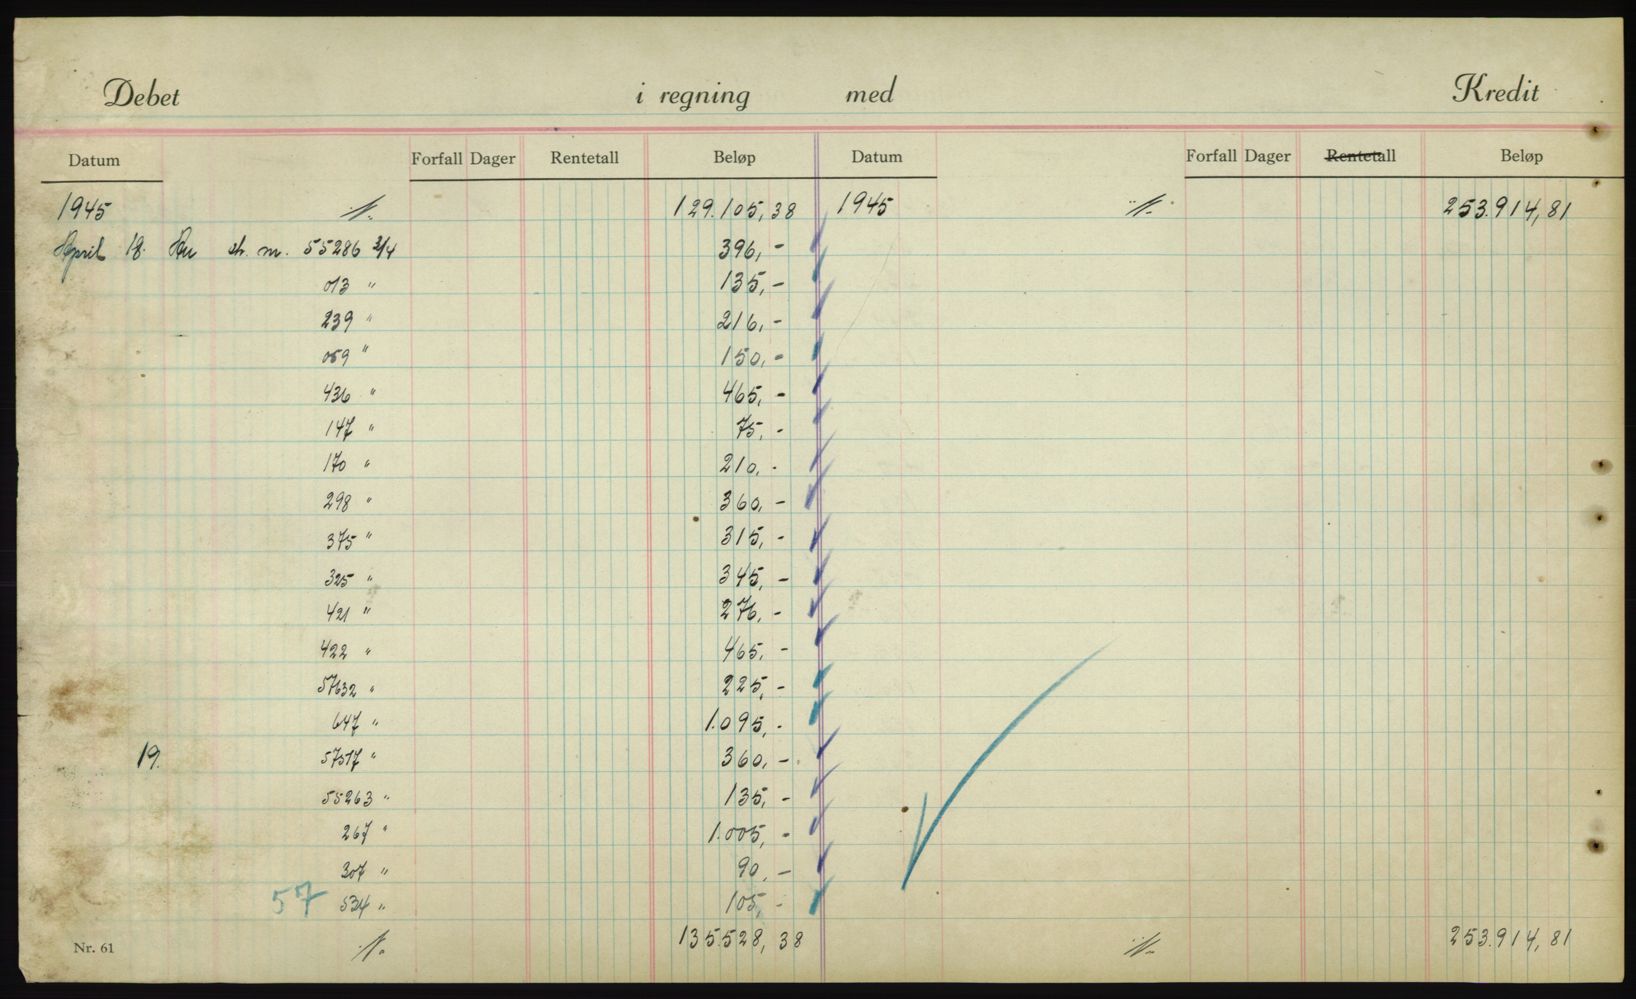 Debet i regning med Kredit
Datum Forfall Dager Rentetall Beløp Datum Forfall Dager Rentetall Beløp
1945 129.105,38 1945 253.914,81
April 18. 55286 3/4 396,-
013 " 135,-
239 " 216,-
059 " 150,-
436 " 465,-
147 " 75,-
170 " 210,-
298 " 360,-
375 " 315,-
325 " 345,-
421 " 276,-
422 " 465,-
57632 " 225,-
647 " 1.095,-
19. 57517 " 360,-
55263 " 135,-
267 " 1.005,-
307 " 90,-
57 534 " 105,-
Nr. 61 135.528,38 253.914,81